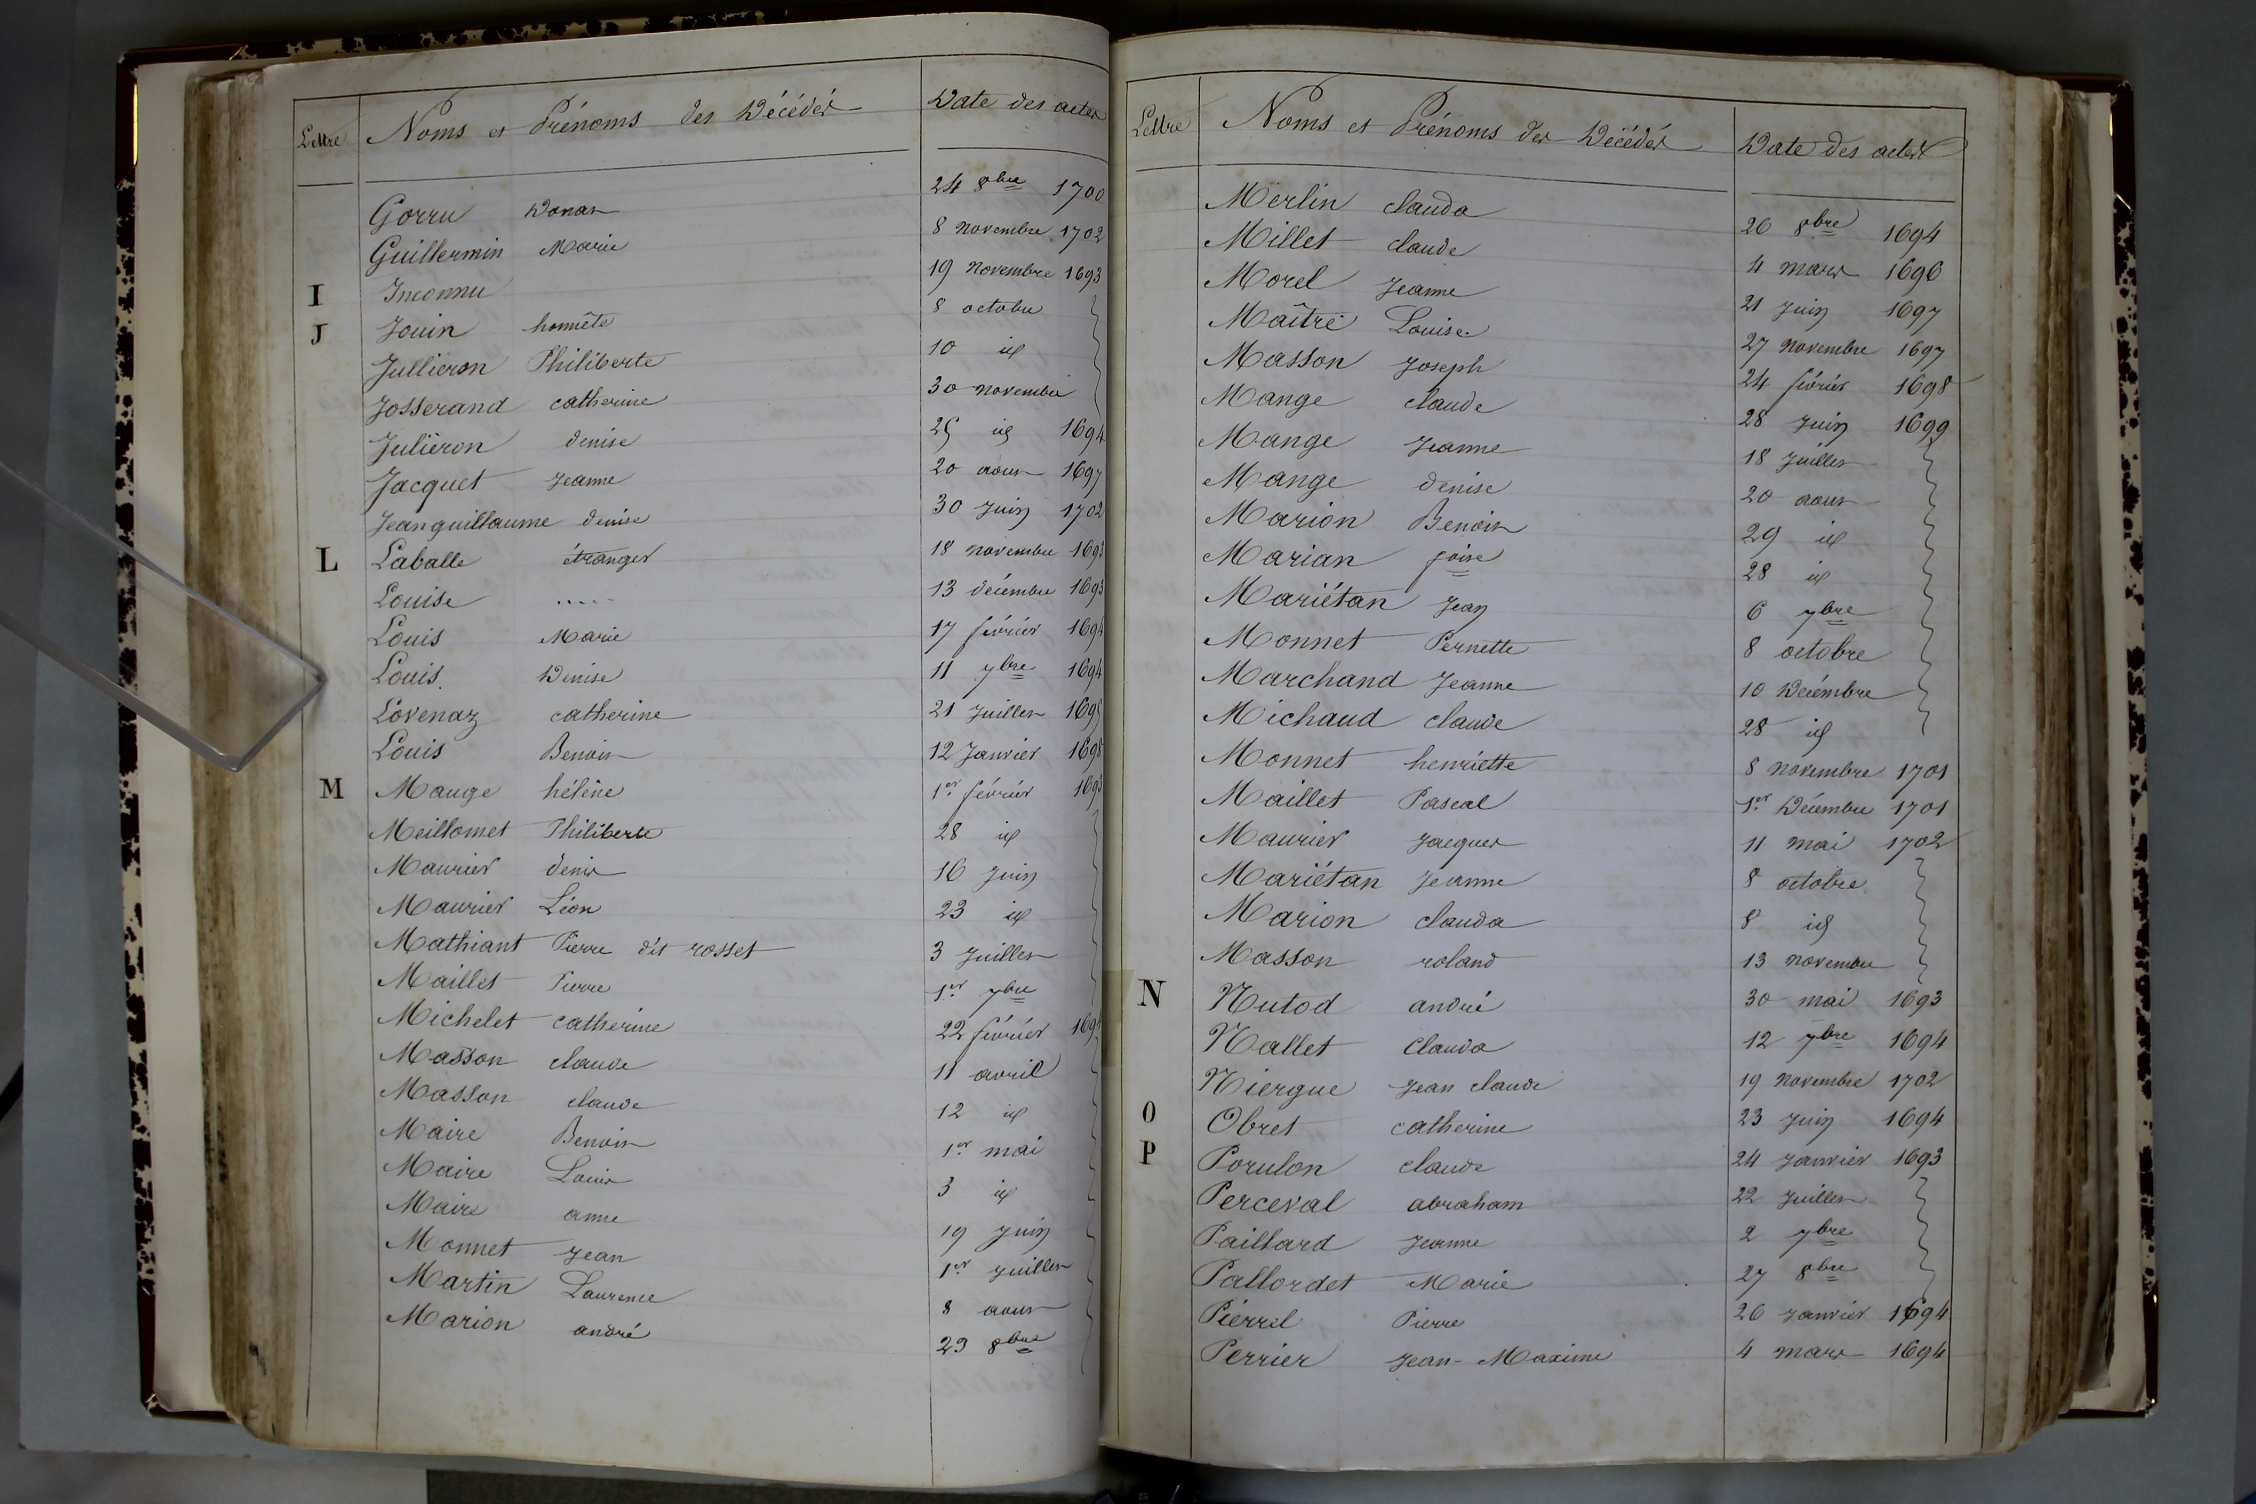 Lettre Noms et Prénoms des Décédés Date des actes
Gorru Donas 24 8bre 1700
Guillermin Marie 8 novembre 1702
I Inconnu 19 novembre 1693
J Jouin honnête 8 octobre
Jullieron Philiberte 10 id
Josserand catherine 30 novembre
Julieron denise 25 id 1694
Jacquet Jeanne 20 aout 1697
Jeanguillaume denise 30 Juin 1702
L Laballe étranger 18 novembre 1693
Louise ..... 13 décembre 1693
Louis Marie 17 février 1694
Louis Denise 11 7bre 1694
Lovenaz catherine 21 Juillet
Louis Benoit 12 Janvier 1698
M Mange hélène 1er février 1693
Meillomet Philiberte 28 id
Maurier denis 16 Juin
Maurier Léon 23 id
Mathiant Pierre dit rosset 3 Juillet
Maillet Pierre 1er 7bre
Michelet catherine 22 février
Masson claude 11 avril
Masson claude 12 id
Maire Benoit 1er mai
Maire Louis 3 id
Maire anne 19 Juin
Monnet Jean 1er Juillet
Martin Laurence 8 aout
Marion andré 23 8bre
Lettre Noms et Prénoms des Décédés Date des actes
Merlin clauda 26 8bre 1694
Millet claude 4 mars 1696
Morel Jeanne 21 Juin 1697
Maître Louise 27 novembre 1697
Masson Joseph 24 février 1698
Mange claude 28 Juin 1699
Mange Jeanne 18 Juillet
Mange denise 20 aout
Marion Benoit 29 id
Marian foise 28 id
Mariétan Jean 6 7bre
Monnet Pernette 8 octobre
Marchand Jeanne 10 Décembre
Michaud claude 28 id
Monnet henriette 8 novembre 1701
Maillet Pascal 1er Décembre 1701
Maurier Jacques 11 mai 1702
Mariétan Jeanne 8 octobre
Marion clauda 8 id
Masson roland 13 novembre
N Nutod andré 30 mai 1693
Nallet Clauda 12 7bre 1694
Niergue Jean claude 19 novembre 1702
O Obret catherine 23 Juin 1694
P Porulon claude 24 Janvier 1693
Perceval abraham 22 Juillet
Paillard Jeanne 2 7bre
Pallordet Marie 27 8bre
Pierrel Pierre 26 Janvier 1694
Perrier Jean-Maxime 4 mars 1694